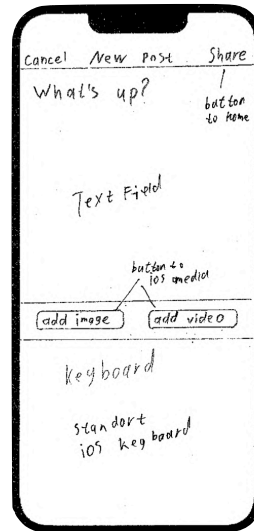 Cancel New Post Share
What's up?
button
to home
Text Field
button to
iOS media
add image add video
Keyboard
standart
iOS keyboard